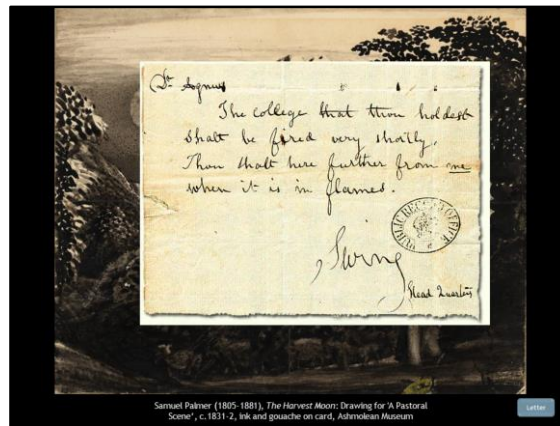 The college that thou holdest
shalt be fired very shortly.
Thou shalt here further from me
when it is in flames.
Swing
Head Quarters
PUBLIC RECORD OFFICE
Samuel Palmer (1805-1881), The Harvest Moon: Drawing for 'A Pastoral
Scene', c.1831-2, ink and gouache on card, Ashmolean Museum
Letter